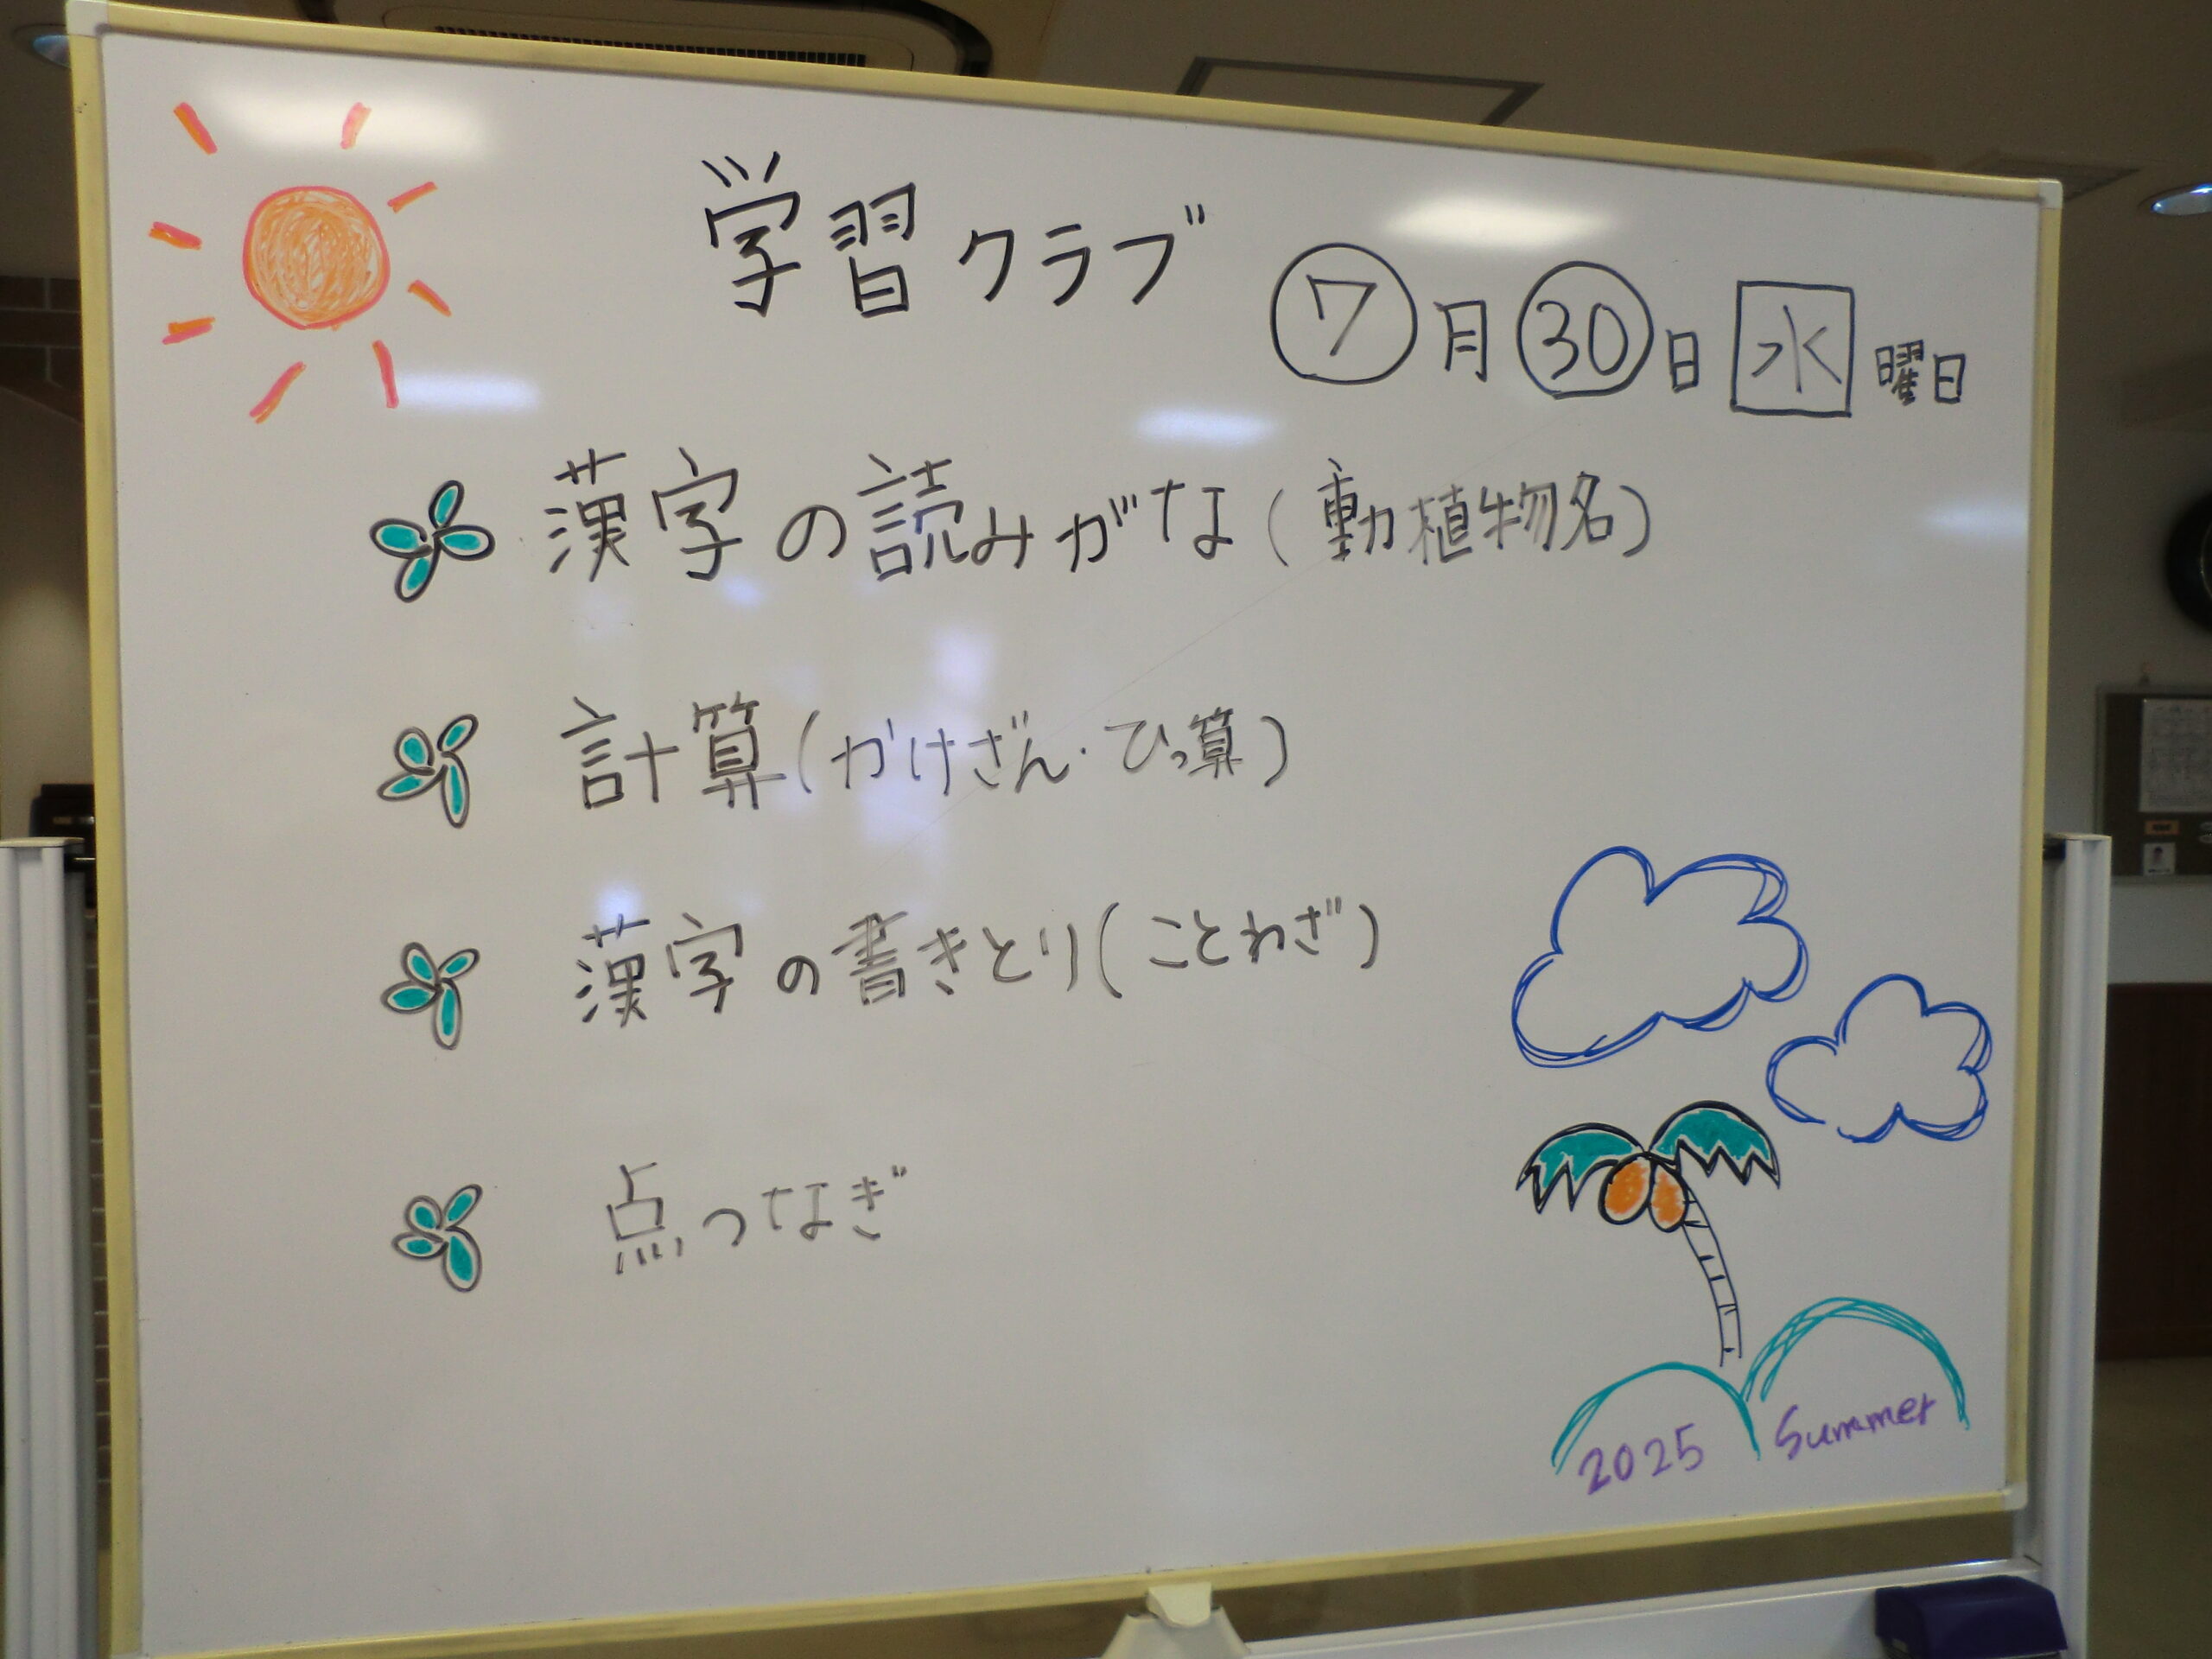 学習クラブ
7月30日水曜日
漢字の読みがな(動植物名)
計算(かけざん・ひっ算)
漢字の書きとり(ことわざ)
点つなぎ
2025 Summer